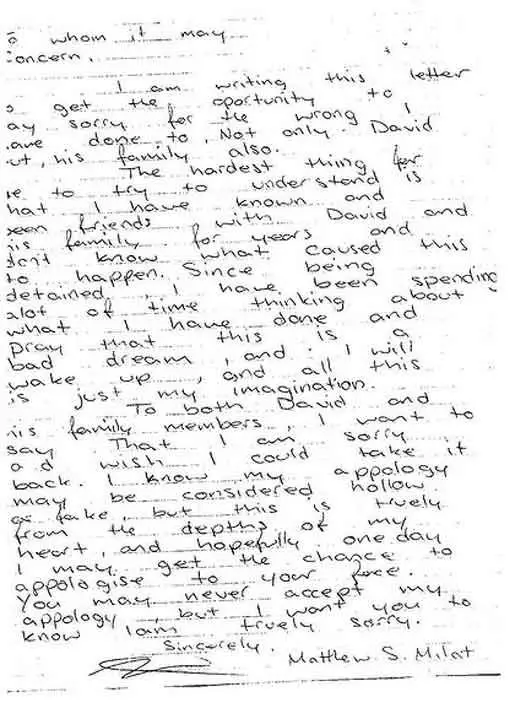 o whom it may
concern,
I am writing this letter
o get the oportunity to
ay sorry for the wrong I
ave done to, Not only David
ut, his family also.
The hardest thing for
e to try to understand is
hat I have known and
een friends with David and
his family for years and
don't know what caused this
to happen. Since being
detained, I have been spending
alot of time thinking about
what I have done and
pray that this is a
bad dream, and I will
wake up, and all this
is just my imagination.
To both David and
his family members, I want to
say That I am sorry
a d wish I could take it
back. I know my appology
may be considered hollow
or fake, but this is truely
from the depths of my
heart, and hopefully one day
I may get the chance to
appologise to your face.
You may never accept my
appology, but I want you to
know I am truely sorry.
Sincerely.
Matthew S. Milat